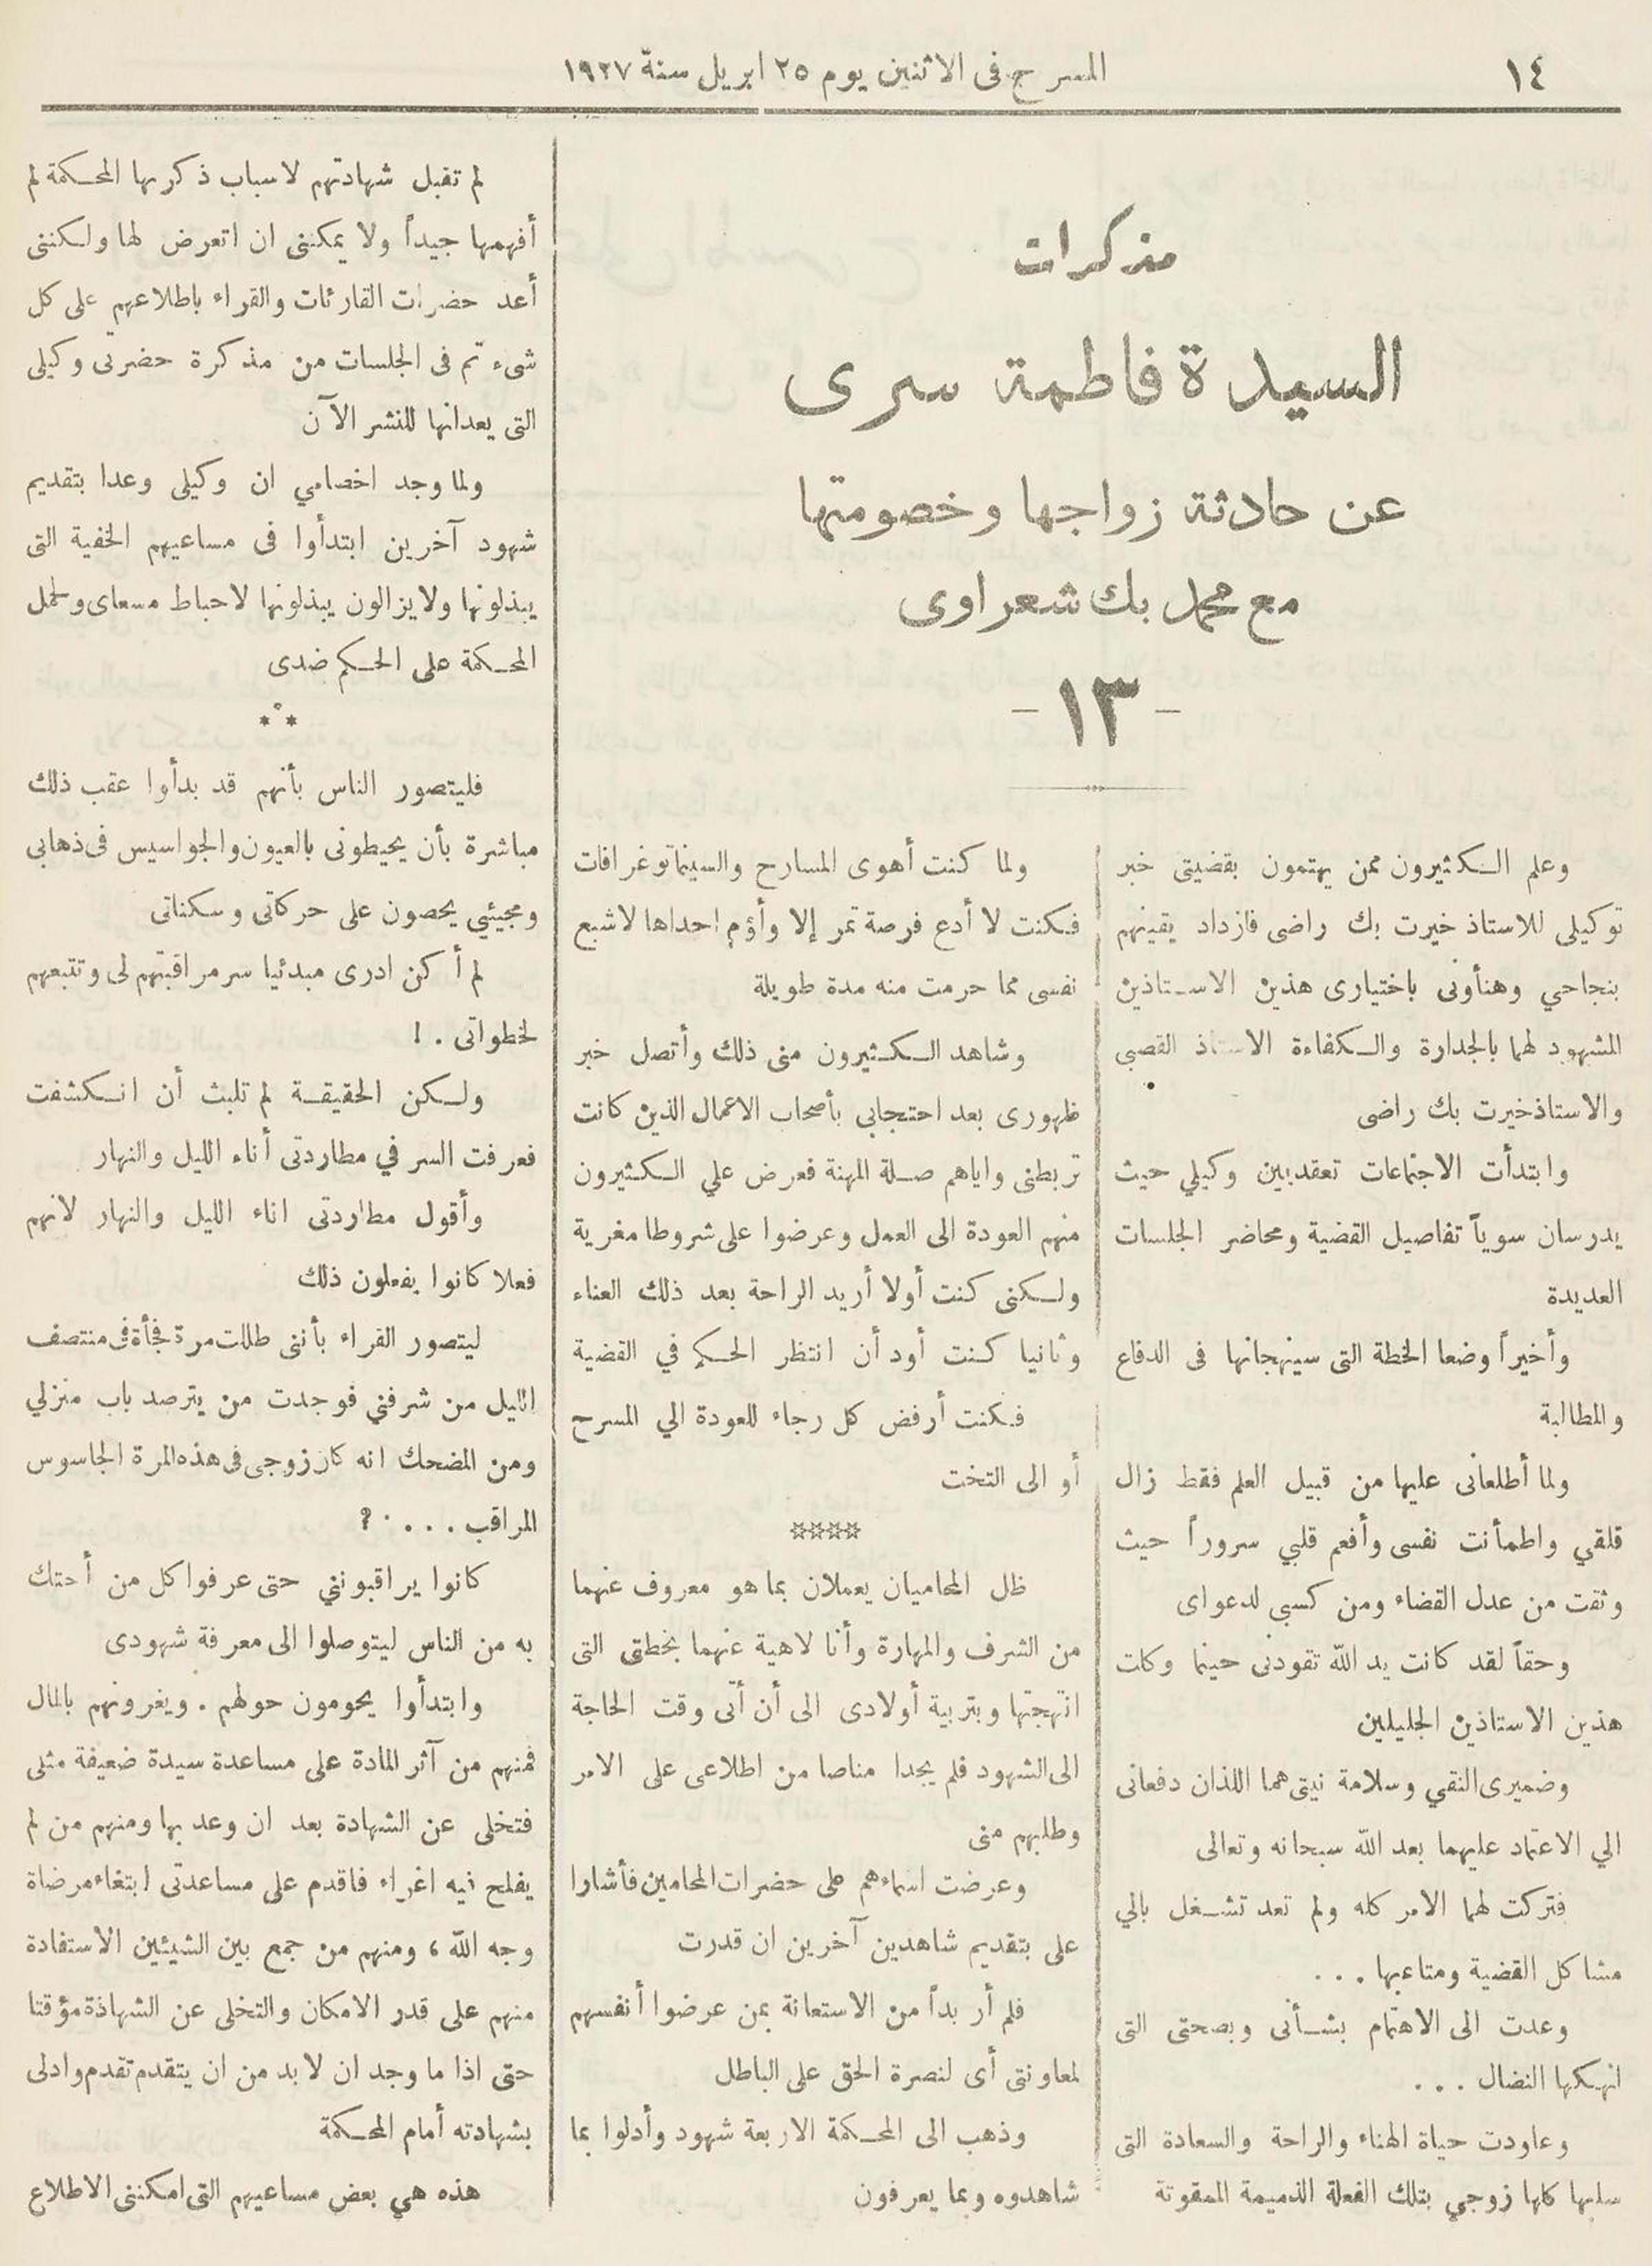 ١٤
المسرح في الاثنين يوم ٢٥ ابريل سنة ١٩٢٧
مذكرات
السيدة فاطمة سرى
عن حادثة زواجها وخصومتها
مع محمد بك شعراوى
- ١٣ -
وعلم الكثيرون ممن يهتمون بقضيتى خبر
توكيلى للاستاذ خيرت بك راضى فازداد يقينهم
بنجاحي وهنأونى باختيارى هذين الاستاذين
المشهود لهما بالجدارة والكفاءة الاستاذ القصبى
والاستاذ خيرت بك راضى
وابتدأت الاجتماعات تعقد بين وكيلي حيث
يدرسان سوياً تفاصيل القضية ومحاضر الجلسات
العديدة
وأخيراً وضعا الخطة التى سينهجانها فى الدفاع
والمطالبة
ولما أطلعانى عليها من قبيل العلم فقط زال
قلقي واطمأنت نفسى وأفعم قلبي سروراً حيث
وثقت من عدل القضاء ومن كسبي لدعواى
وحقاً لقد كانت يد الله تقودنى حينما وكات
هذين الاستاذين الجليلين
وضميرى النقي وسلامة نيتى هما اللذان دفعانى
الي الاعتماد عليهما بعد الله سبحانه وتعالى
فتركت لهما الامر كله ولم تعد تشغل بالي
مشاكل القضية ومتاعبها . . .
وعدت الى الاهتمام بشأنى وبصحتى التى
انهكها النضال . . .
وعاودت حياة الهناء والراحة والسعادة التى
سلبها كلها زوجي بتلك الفعلة الذميمة الممقوتة
ولما كنت أهوى المسارح والسينماتوغرافات
فكنت لا أدع فرصة تمر إلا وأؤم احداها لاشبع
نفسى مما حرمت منه مدة طويلة
وشاهد الكثيرون منى ذلك وأتصل خبر
ظهورى بعد احتجابي بأصحاب الاعمال الذين كانت
تربطنى واياهم صلة المهنة فعرض علي الكثيرون
منهم العودة الى العمل وعرضوا على شروطا مغرية
ولكنى كنت أولا أريد الراحة بعد ذلك العناء
وثانيا كنت أود أن انتظر الحكم في القضية
فكنت أرفض كل رجاء للعودة الي المسرح
أو الى التخت
****
ظل المحاميان يعملان بما هو معروف عنهما
من الشرف والمهارة وأنا لاهية عنهما بخطتى التى
انتهجتها وبتربية أولادى الى أن أتى وقت الحاجة
الى الشهود فلم يجدا مناصا من اطلاعى على الامر
وطلبهم منى
وعرضت اسماءهم على حضرات المحامين فأشارا
على بتقديم شاهدين آخرين ان قدرت
فلم أر بداً من الاستعانة بمن عرضوا أنفسهم
لمعاونتى أى لنصرة الحق على الباطل
وذهب الى المحكمة الاربعة شهود وأدلوا بما
شاهدوه وبما يعرفون
لم تقبل شهادتهم لاسباب ذكرتها المحكمة لم
أفهمها جيداً ولا يمكننى ان اتعرض لها ولكننى
أعد حضرات القارئات والقراء باطلاعهم على كل
شىء تم فى الجلسات من مذكرة حضرتى وكيلى
التى يعدانها للنشر الآن
ولما وجد اخصامي ان وكيلى وعدا بتقديم
شهود آخرين ابتدأوا فى مساعيهم الخفية التى
يبذلونها ولا يزالون يبذلونها لاحباط مسعاى ولحمل
المحكمة على الحكم ضدى
***
فليتصور الناس بأنهم قد بدأوا عقب ذلك
مباشرة بأن يحيطونى بالعيون والجواسيس فى ذهابى
ومجيئي يحصون على حركاتى وسكناتى
لم أكن ادرى مبدئيا سر مراقبتهم لى وتتبعهم
لخطواتى . !
ولكن الحقيقة لم تلبث أن انكشفت
فعرفت السر في مطاردتى أناء الليل والنهار
وأقول مطاردتى اناء الليل والنهار لانهم
فعلا كانوا يفعلون ذلك
ليتصور القراء بأننى طللت مرة فجأة فى منتصف
الليل من شرفتي فوجدت من يترصد باب منزلي
ومن المضحك انه كان زوجى فى هذه المرة الجاسوس
المراقب . . . . ?
كانوا يراقبونني حتى عرفوا كل من أحتك
به من الناس ليتوصلوا الى معرفة شهودى
وابتدأوا يحومون حولهم . ويغرونهم بالمال
فمنهم من آثر المادة على مساعدة سيدة ضعيفة مثلى
فتخلى عن الشهادة بعد ان وعد بها ومنهم من لم
يفلح فيه اغراء فاقدم على مساعدتى ابتغاء مرضاة
وجه الله ، ومنهم من جمع بين الشيئين الاستفادة
منهم على قدر الامكان والتخلى عن الشهادة مؤقتا
حتى اذا ما وجد ان لا بد من ان يتقدم تقدم وادلى
بشهادته أمام المحكمة
هذه هي بعض مساعيهم التى امكننى الاطلاع